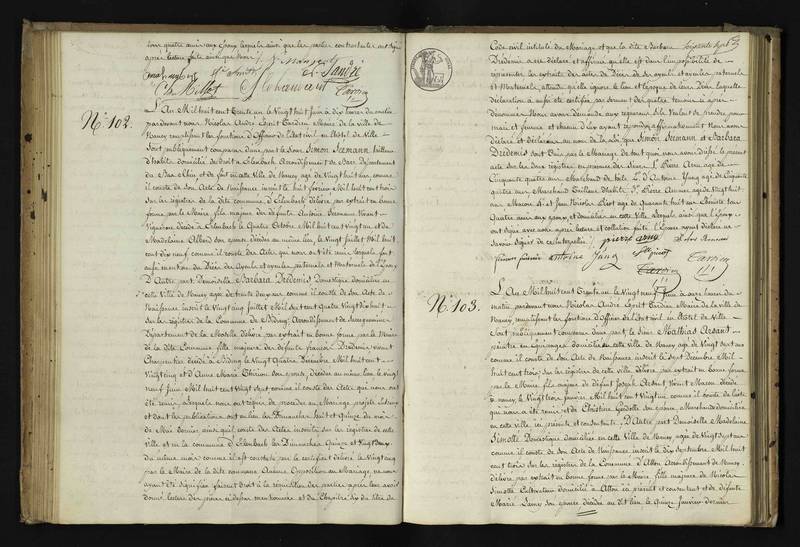 tous quatre amis aux Epoux lesquels ainsi que les parties contractantes ont signé
après lecture faite ainsi que Nous
Ch. Millot
N° 102.
L'An Mil huit cent Trente un le Vingt huit Juin à dix heures du matin
pardevant nous Nicolas André Esprit Tardieu Maire de la ville de
Nancy remplissant les fonctions d'Officier de l'état civil en Hôtel de Ville
Sont publiquement comparus dans part le Sieur Simon Seemann tailleur
d'habits domicilié de droit à Elsenbach Arrondissement de Bar Département
du Bas Rhin et de fait en cette Ville de Nancy agé de Vingt huit ans comme
il conste de son Acte de Naissance inscrit le huit février Mil huit cent trois
Sur les registres de la dite commune d'Elsenbach délivré par extrait en bonne
forme par le Maire fils majeur des défunts Antoine Seemann Vivant
Vigneron décédé à Elsenbach le Quatre Octobre Mil huit cent Vingt un et de
Madelaine Albord son épouse décédée au même lieu, le Vingt Juillet Mil huit
cent dix neuf comme il conste des Actes qui nous ont été remis lesquels font
aussi mention du Décès des Ayeuls et ayeules paternels et Maternels de l'Epoux
D'Autre part Demoiselle Barbara Dredemis Domestique domiciliée en
cette Ville de Nancy agée de trente deux ans comme il conste de son Acte de
Naissance inscrit le Vingt cinq Juillet Mil Sept cent Quatre Vingt dix huit
sur les registres de la Commune de Biding Arrondissement de Sarreguemines
Département de la Moselle délivré par extrait en bonne forme par le Maire
de la dite Commune fille majeure des défunts françois Dredemis vivant
Charpentier décédé à Biding le Vingt Quatre Décembre Mil huit cent
Vingt cinq et d'Anne Marie Thirion son épouse, décédée au même lieu le vingt
neuf Juin Mil huit cent Vingt Sept comme il conste des Actes qui nous ont
été remis Lesquels nous ont requis de procéder au Mariage projeté entr'eux
et dont les publications ont eu lieu les Dimanches huit et Quinze du mois
de Mai dernier ainsi qu'il conste des Actes inscrits sur les registres de cette
ville et en la commune d'Elsenbach les Dimanches Quinze et Vingt deux
du même mois comme il est constaté par le certificat délivré le Vingt cinq
par le Maire de la dite commune Aucune Opposition au Mariage ne nous
ayant été signifiée faisant droit à la réquisition des parties après leur avoir
donné lecture des pièces ci dessus mentionnées et du Chapitre six du titre du
Code civil intitulé du Mariage et que la dite Barbara
Soixante Sept
Dredemis a eu déclaré et affirmé qu'elle est dans l'impossibilité de
représenter les extraits des actes de Décès de ses ayeuls et ayeules paternels
et Maternels, attendu qu'elle ignore le lieu et l'époque de leurs Décès laquelle
déclaration a aussi été certifiée par serment des quatre témoins ci après
dénommés. Nous avons demandé aux requérans s'ils veulent se prendre pour
mari et femme et chacun d'eux ayant répondu affirmativement Nous avons
déclaré et déclarons au nom de la loi que Simon Seemann et Barbara
Dredemis sont Unis par le Mariage de tout quoi nous avons dressé le présent
acte sur les deux registres en présence des Sieurs 1. Pierre Arny agé de
Cinquante quatre ans Marchand de toile 2. D'Antoine Yung agé de Cinquante
quatre ans Marchand Tailleur d'habits 3. Pierre Aurnes agé de Vingt huit
ans Maçon 4. et Jean Nicolas Picot agé de Quarante huit ans Ebéniste tous
Quatre amis aux époux, et domiciliés en cette Ville Lesquels ainsi que l'Epoux
ont signé avec nous après lecture et collation faite l'Epouse ayant déclaré ne
savoir signer de ce interpellée
pierre arny
antoine Jung
picot
Tardieu
N° 103.
L'An Mil huit cent Trente un le Vingt neuf Juin à dix heures du
matin pardevant nous Nicolas André Esprit Tardieu Maire de la ville de
Nancy remplissant les fonctions d'Officier de l'état civil en hôtel de Ville
Sont publiquement comparus d'une part, le Sieur Mathias Arsant
peintre en équipages domicilié en cette ville de Nancy agé de Vingt sept ans
comme il conste de son Acte de Naissance inscrit le sept Décembre Mil
huit cent trois sur les registres de cette ville délivré par extrait en bonne forme
par le Maire fils majeur de défunt Joseph Arsant Vivant Maçon décédé
à Nancy, le Vingt trois janvier Mil huit cent Vingt un comme il conste de l'acte
qui nous a été remis et de Christine Gondolf son épouse, Marchande domiciliée
en cette ville ici présente et consentante. D'Autre part Demoiselle Madelaine
Simotte Domestique domiciliée en cette Ville de Nancy agée de Vingt sept ans
comme il conste de son Acte de Naissance inscrit le dix Septembre Mil huit
cent trois Sur les registres de la Commune d'Atton Arrondissement de Nancy,
délivré par extrait en bonne forme par le Maire, fille majeure de Nicolas
Simotte Cultivateur domicilié à Atton ici présent et consentant et de défunte
Marie Lamy son épouse décédée au dit lieu le Quinze Janvier dernier